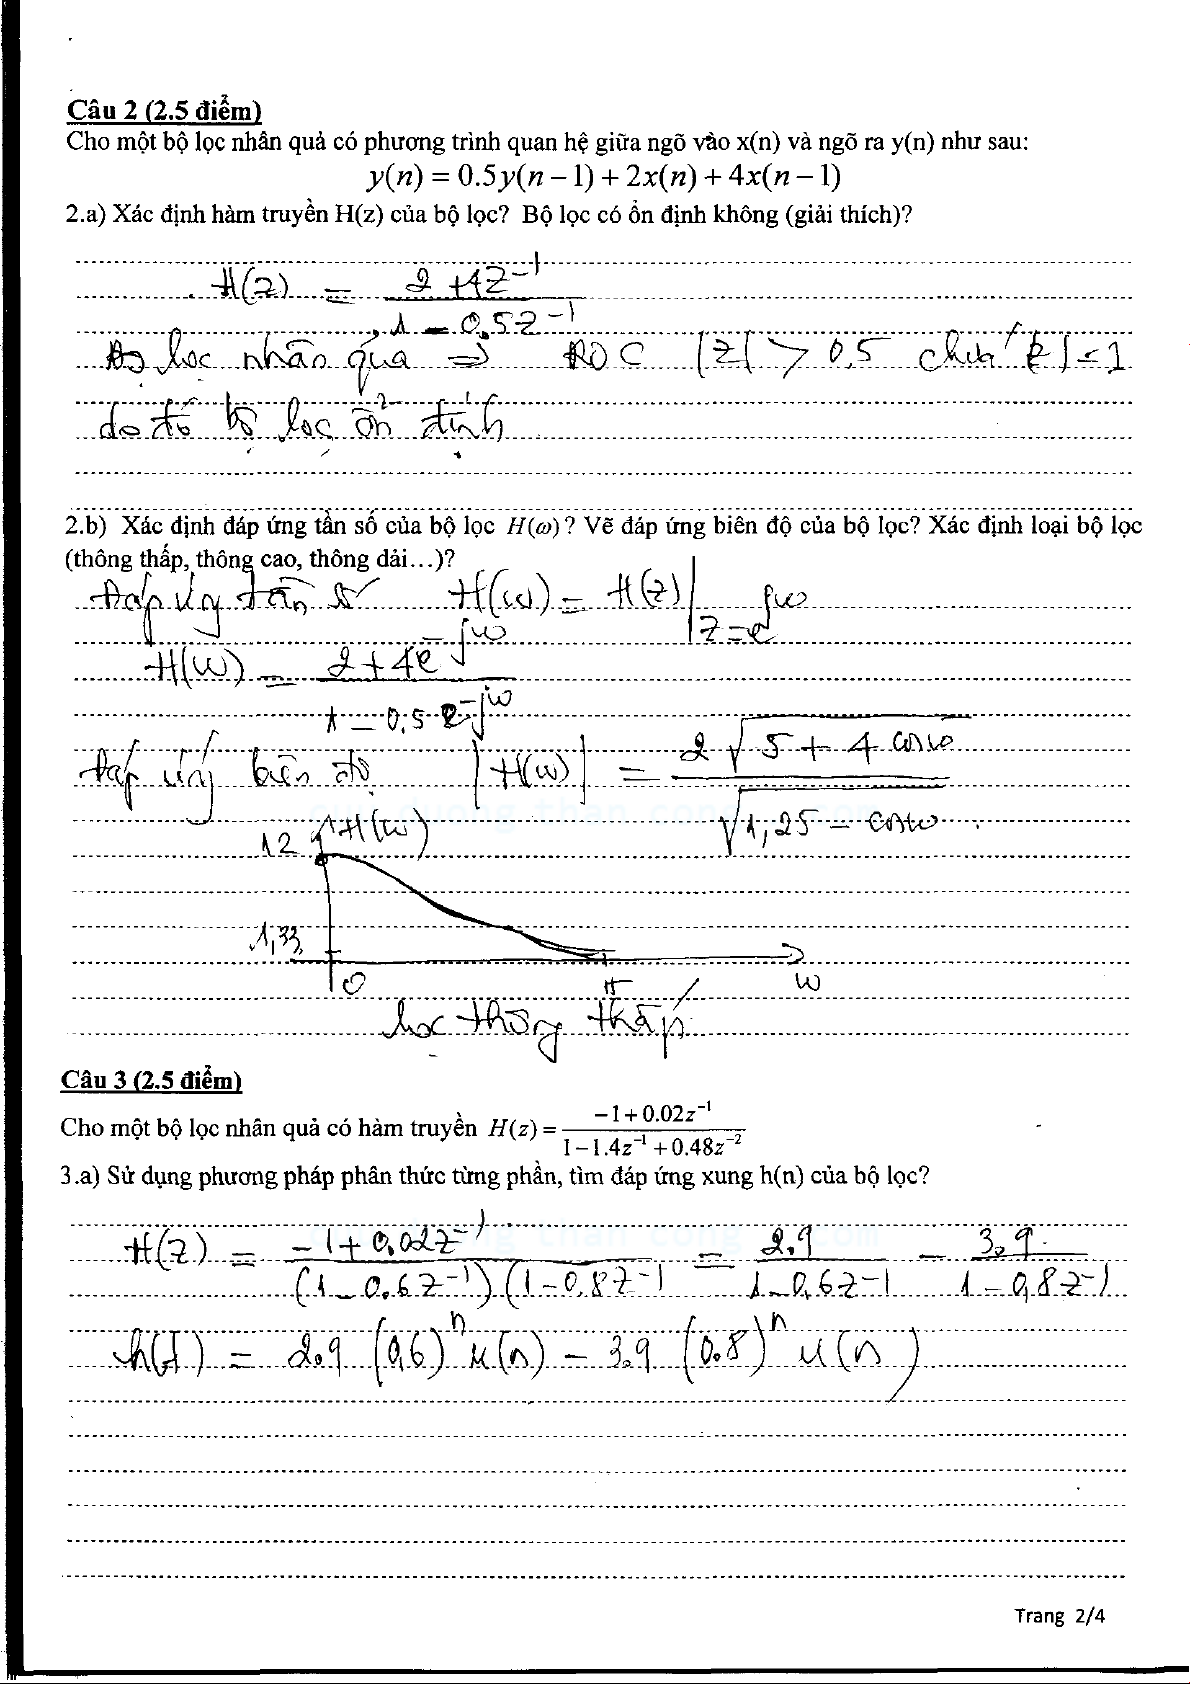 Câu 2 (2.5 điểm)
Cho một bộ lọc nhân quả có phương trình quan hệ giữa ngõ vào x(n) và ngõ ra y(n) như sau:
y(n) = 0.5y(n − 1) + 2x(n) + 4x(n − 1)
2.a) Xác định hàm truyền H(z) của bộ lọc? Bộ lọc có ổn định không (giải thích)?
H(z) = (2 + 4z⁻¹) / (1 − 0,5z⁻¹)
lọc nhân quả ⇒ ROC |z| > 0,5 chứa |z| = 1
do đó bộ lọc ổn định
2.b) Xác định đáp ứng tần số của bộ lọc H(ω)? Vẽ đáp ứng biên độ của bộ lọc? Xác định loại bộ lọc
(thông thấp, thông cao, thông dải…)?
Đáp ứng tần số H(ω) = H(z)|z=e^jω
H(ω) = (2 + 4e^−jω) / (1 − 0,5e^−jω)
Đáp ứng biên độ |H(ω)| = 2√(5 + 4cosω) / √(1,25 − cosω)
cuu duong than cong . com
12 H(ω)
1,33
0 π ω
lọc thông thấp
Câu 3 (2.5 điểm)
Cho một bộ lọc nhân quả có hàm truyền H(z) = (−1 + 0.02z⁻¹) / (1 − 1.4z⁻¹ + 0.48z⁻²)
3.a) Sử dụng phương pháp phân thức từng phần, tìm đáp ứng xung h(n) của bộ lọc?
cuu duong than cong . com
H(z) = (−1 + 0.02z⁻¹) / (1 − 0.6z⁻¹)(1 − 0,8z⁻¹ = 2.9 / (1 − 0,6z⁻¹ − 3.9 / (1 − 0,8z⁻¹)
h(n) = 2.9 (0,6)ⁿ u(n) − 3.9 (0.8)ⁿ u(n)
Trang 2/4